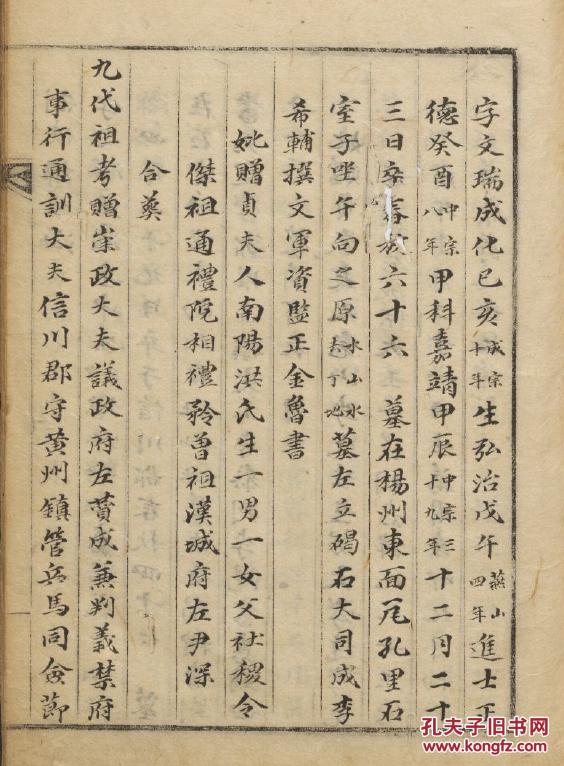 字文瑞成化己亥成宗十年生弘治戊午燕山四年進士正
德癸酉中宗八年甲科嘉靖甲辰中宗三十九年十二月二十
三日卒春秋六十六 墓在楊州東面瓦孔里石
室子坐午向之原水山水丁地墓左立碣石大同成李
希輔撰文軍資監正金魯書
妣贈貞夫人南陽洪氏生一男一女父社稷令
傑祖通禮院相禮矜曾祖漢城府左尹深
合
九代祖考贈崇政大夫議政府左贊成兼判義禁府
事行通訓大夫信川郡守黃州鎮管兵馬同僉節
孔夫子旧书网
www.kongfz.com